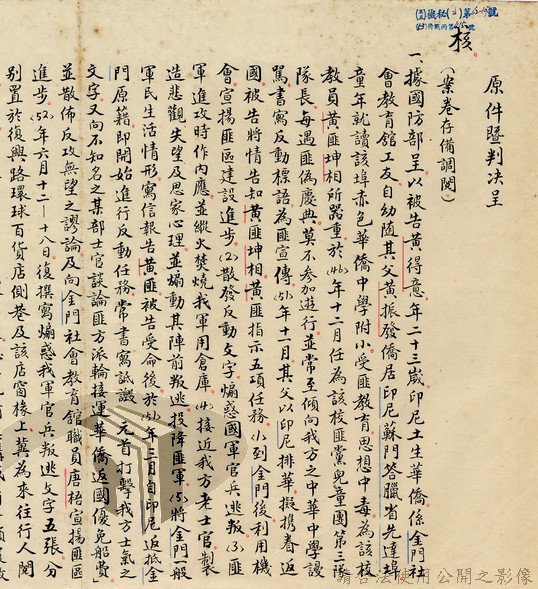 核
原件暨判决呈
（案卷存備調閱）
一、據國防部呈以被告黃得意年二十三歲印尼土生華僑係金門社
會教育館工友自幼隨其父黃振發僑居印尼蘇門答臘省先達埠
童年就讀該埠赤色華僑中學附小受匪教育思想中毒為該校
教員黃匪坤相所器重於(46)年十二月任為該校匪黨兒童團第三隊
隊長每遇匪偽慶典莫不參加遊行並常至傾向我方之中華中學謾
罵書寫反動標語為匪宣傳(51)年十一月其父以印尼排華擬携眷返
國被告將情告知黃匪坤相黃匪指示五項任務(1)到金門後利用機
會宣揚匪區建設進步(2)散發反動文字煽惑國軍官兵逃叛(3)匪
軍進攻時作內應並縱火焚燒我軍用倉庫(4)接近我方老士官製
造悲觀失望及思家心理並煽動其陣前叛逃投降匪軍(5)將金門一般
軍民生活情形寫信報告黃匪被告受命後於(51)年三月自印尼返抵金
門原籍即開始進行反動任務常書寫詆譭　元首打擊我方士氣之
文字又向不知名之某部士官談論匪方派輪接運華僑返國優免船費
並散佈反攻無望之謬論及向金門社會教育館職員唐梧宣揚匪區
進步(52)年六月十二－十八日復撰寫煽惑我軍官兵叛逃文字五張分
別置於復興路環球百貨店側巷及該店窗椽上冀為來往行人閱
請合法使用公開之影像